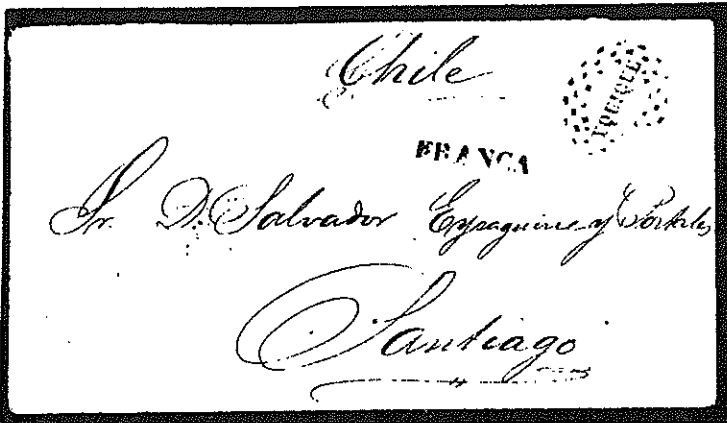 Chile
IQUIQUE
FRANCA
Sr. D. Salvador Eyzaguirre y Portales
Santiago